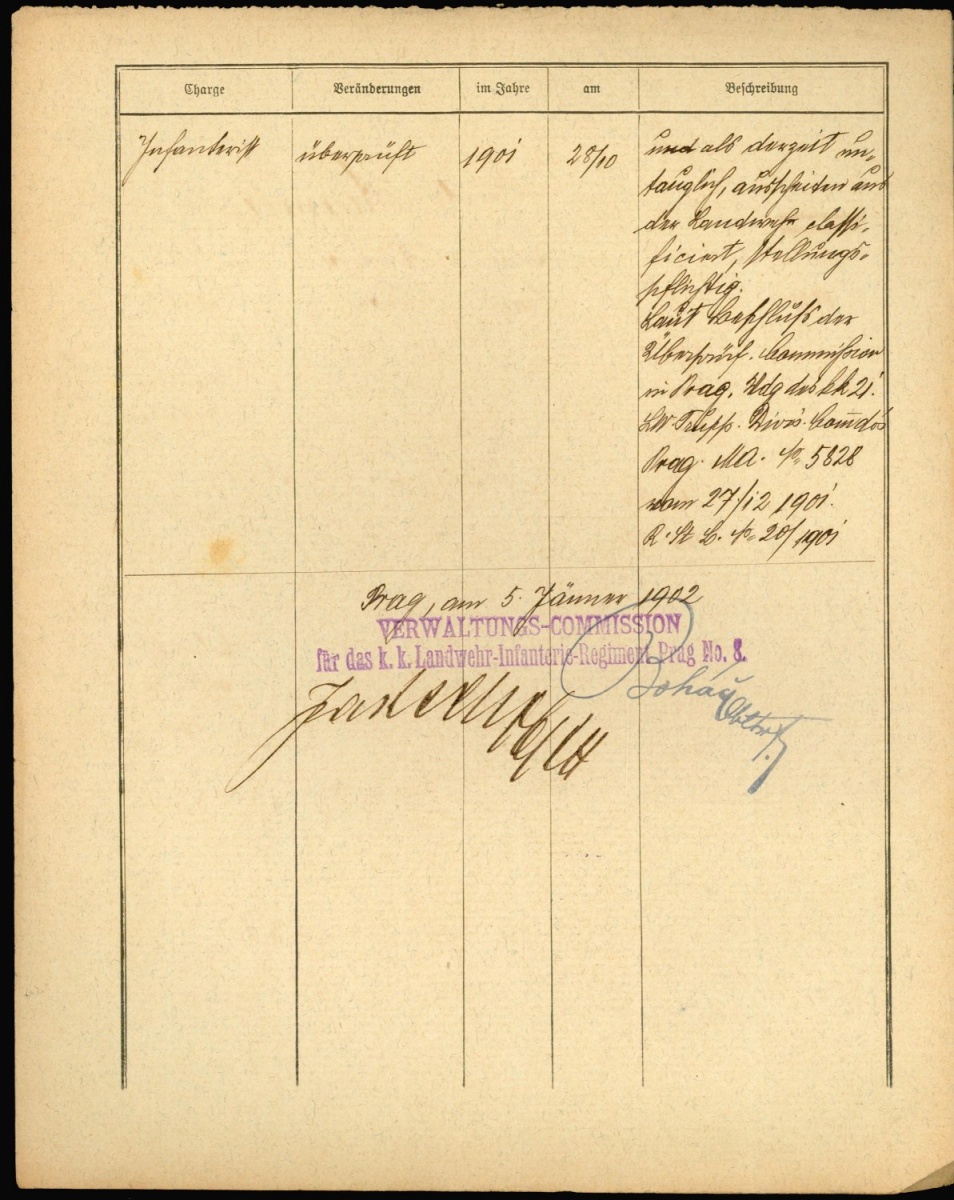 Charge Veränderungen im Jahre am Beschreibung
Infanterist überprüft 1901 28/10 und als derzeit un-
tauglich, ausscheiden aus
der Landwehr classi-
ficiert, stellungs-
pflichtig.
Laut Beschluß der
Überprüf. Commission
in Prag, Vdg des kk 21.
LW. Trupp. Divis. Comdos
Prag. MA. No 5828
vom 27/12 1901.
R. St B. No 20/1901
Prag, am 5. Jänner 1902
VERWALTUNGS-COMMISSION
für das k. k. Landwehr-Infanterie-Regiment Prag No. 8.